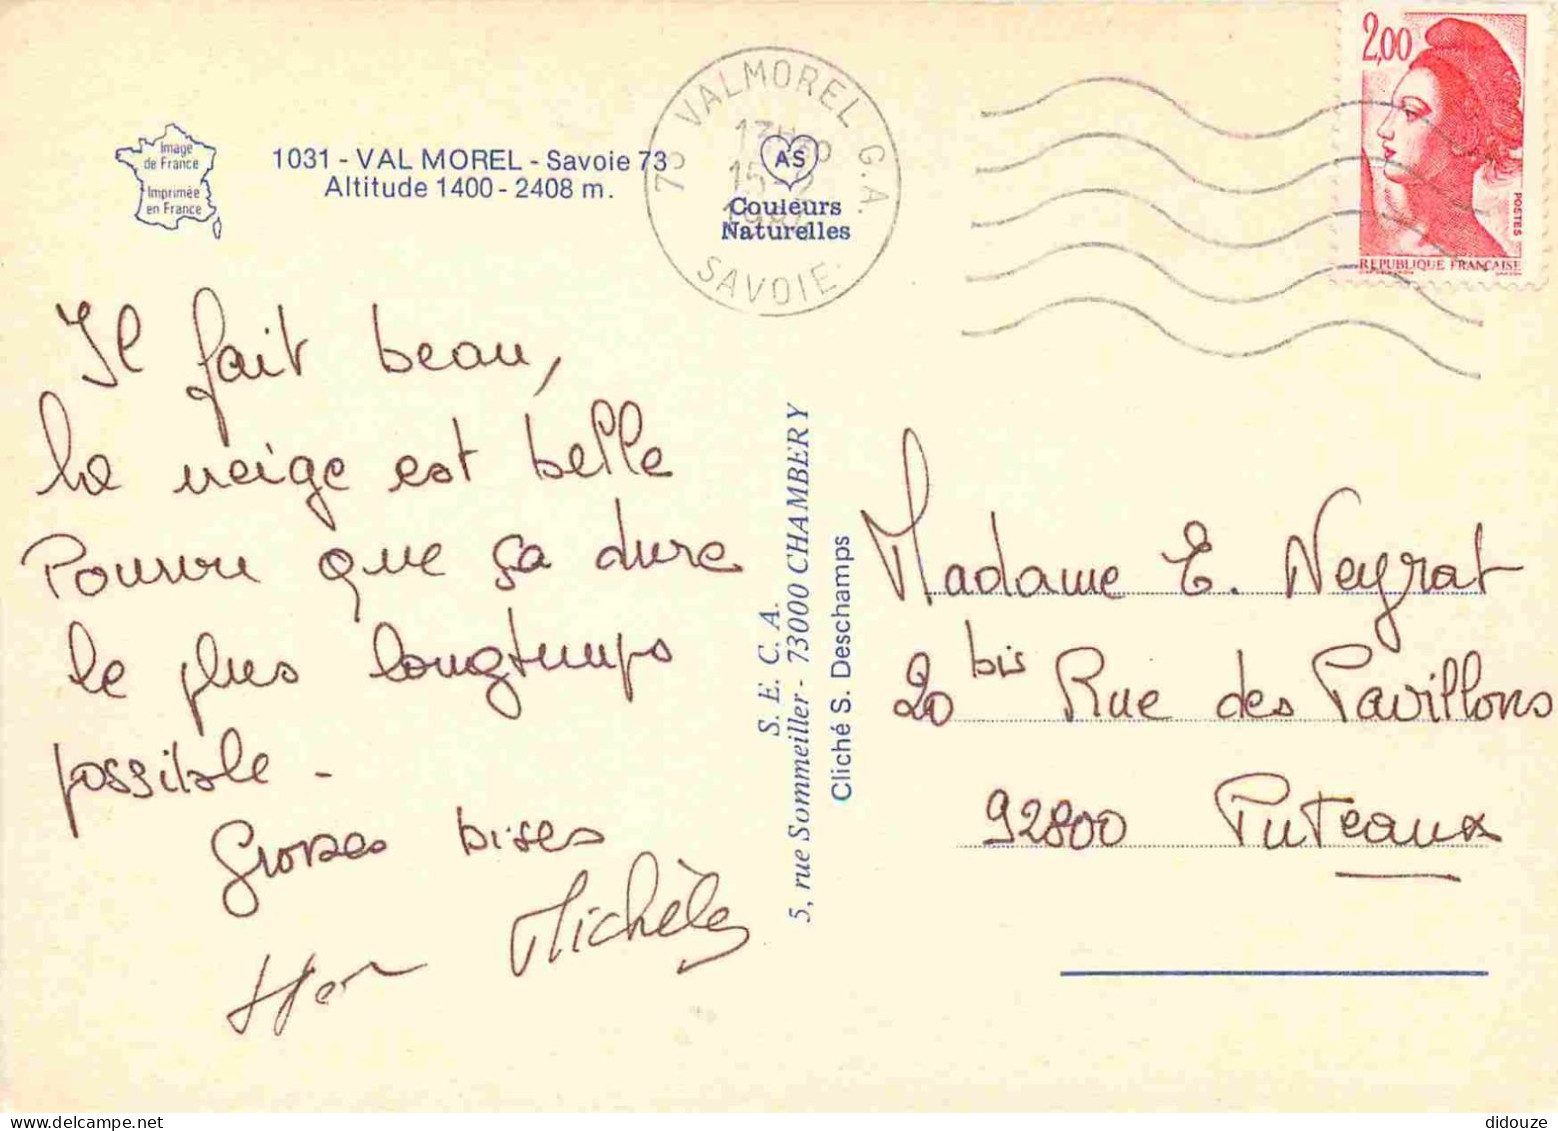 Image
de France
Imprimée
en France
1031 - VAL MOREL - Savoie 73
Altitude 1400 - 2408 m.
73 VALMOREL G.A.
15-2
SAVOIE
AS
Couleurs
Naturelles
2,00
POSTES
REPUBLIQUE FRANÇAISE
Il fait beau,
la neige est belle
Pourvu que ça dure
le plus longtemps
possible -
Grosses bises
Michèle
S. E. C. A.
5, rue Sommeiller - 73000 CHAMBERY
Cliché S. Deschamps
Madame E. Neyrat
20 bis Rue des Pavillons
92800 Puteaux
didouze